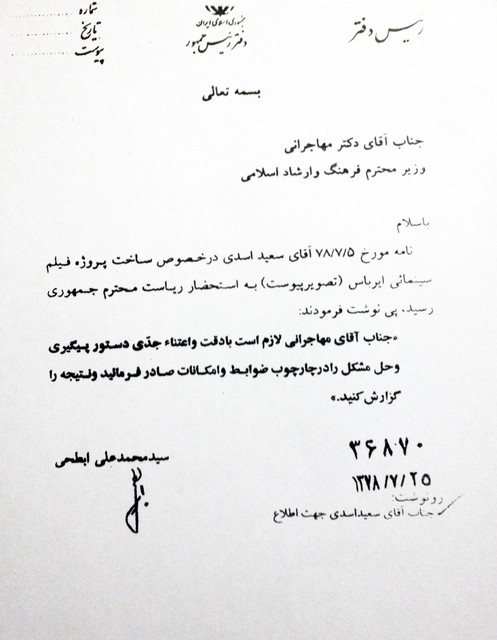 شماره
تاریخ
پیوست
جمهوری اسلامی ایران
دفتر رئیس جمهور
رئیس دفتر
بسمه تعالی
جناب آقای دکتر مهاجرانی
وزیر محترم فرهنگ وارشاد اسلامی
باسلام
نامه مورخ ۷۸/۷/۵ آقای سعید اسدی درخصوص ساخت پروژه فیلم
سینمائی ایرباس (تصویرپیوست) به استحضار ریاست محترم جمهوری
رسید، پی نوشت فرمودند:
«جناب آقای مهاجرانی لازم است بادقت واعتناء جدّی دستور پیگیری
وحل مشکل رادرچارچوب ضوابط وامکانات صادر فرمائید ونتیجه را
گزارش کنید.»
سیدمحمدعلی ابطحی
۳۶۸۷۰
۱۳۷۸/۷/۲۵
رونوشت:
جناب آقای سعیداسدی جهت اطلاع